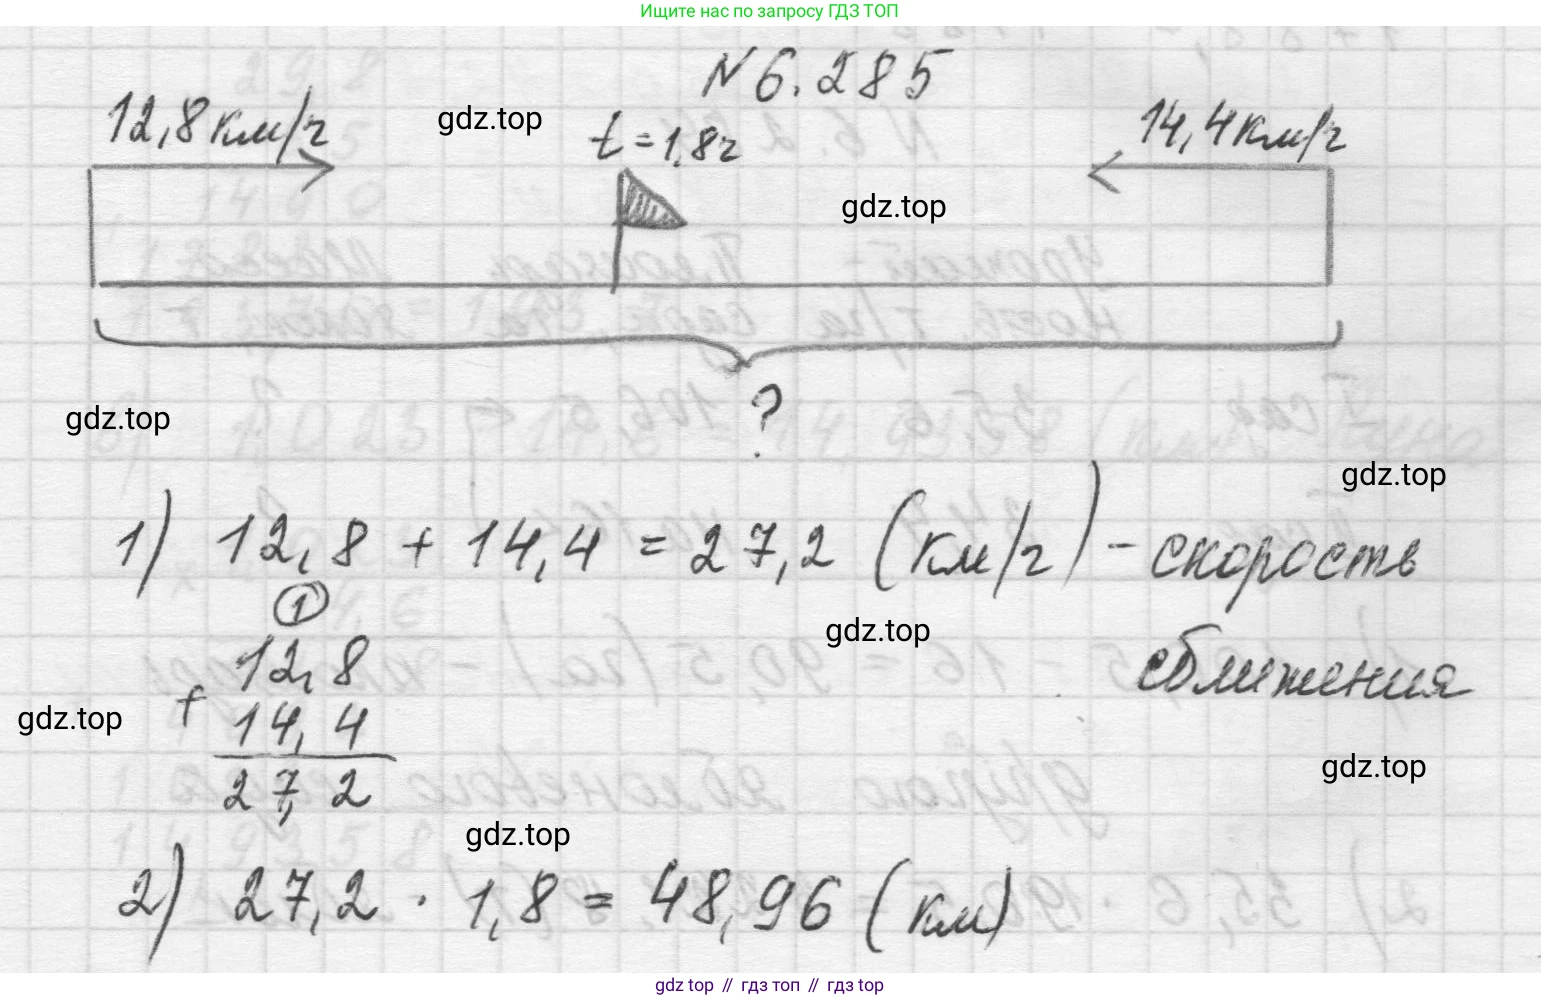 Ищите нас по запросу ГДЗ ТОП
N 6.285
12,8 км/ч
gdz.top
t = 1,8 ч
14,4 км/ч
gdz.top
?
gdz.top
gdz.top
1) 12,8 + 14,4 = 27,2 (км/ч) - скорость
сближения
gdz.top
1
12,8
+
14,4
27,2
gdz.top
gdz.top
gdz.top
2) 27,2 · 1,8 = 48,96 (км)
gdz.top // гдз топ // гдз top